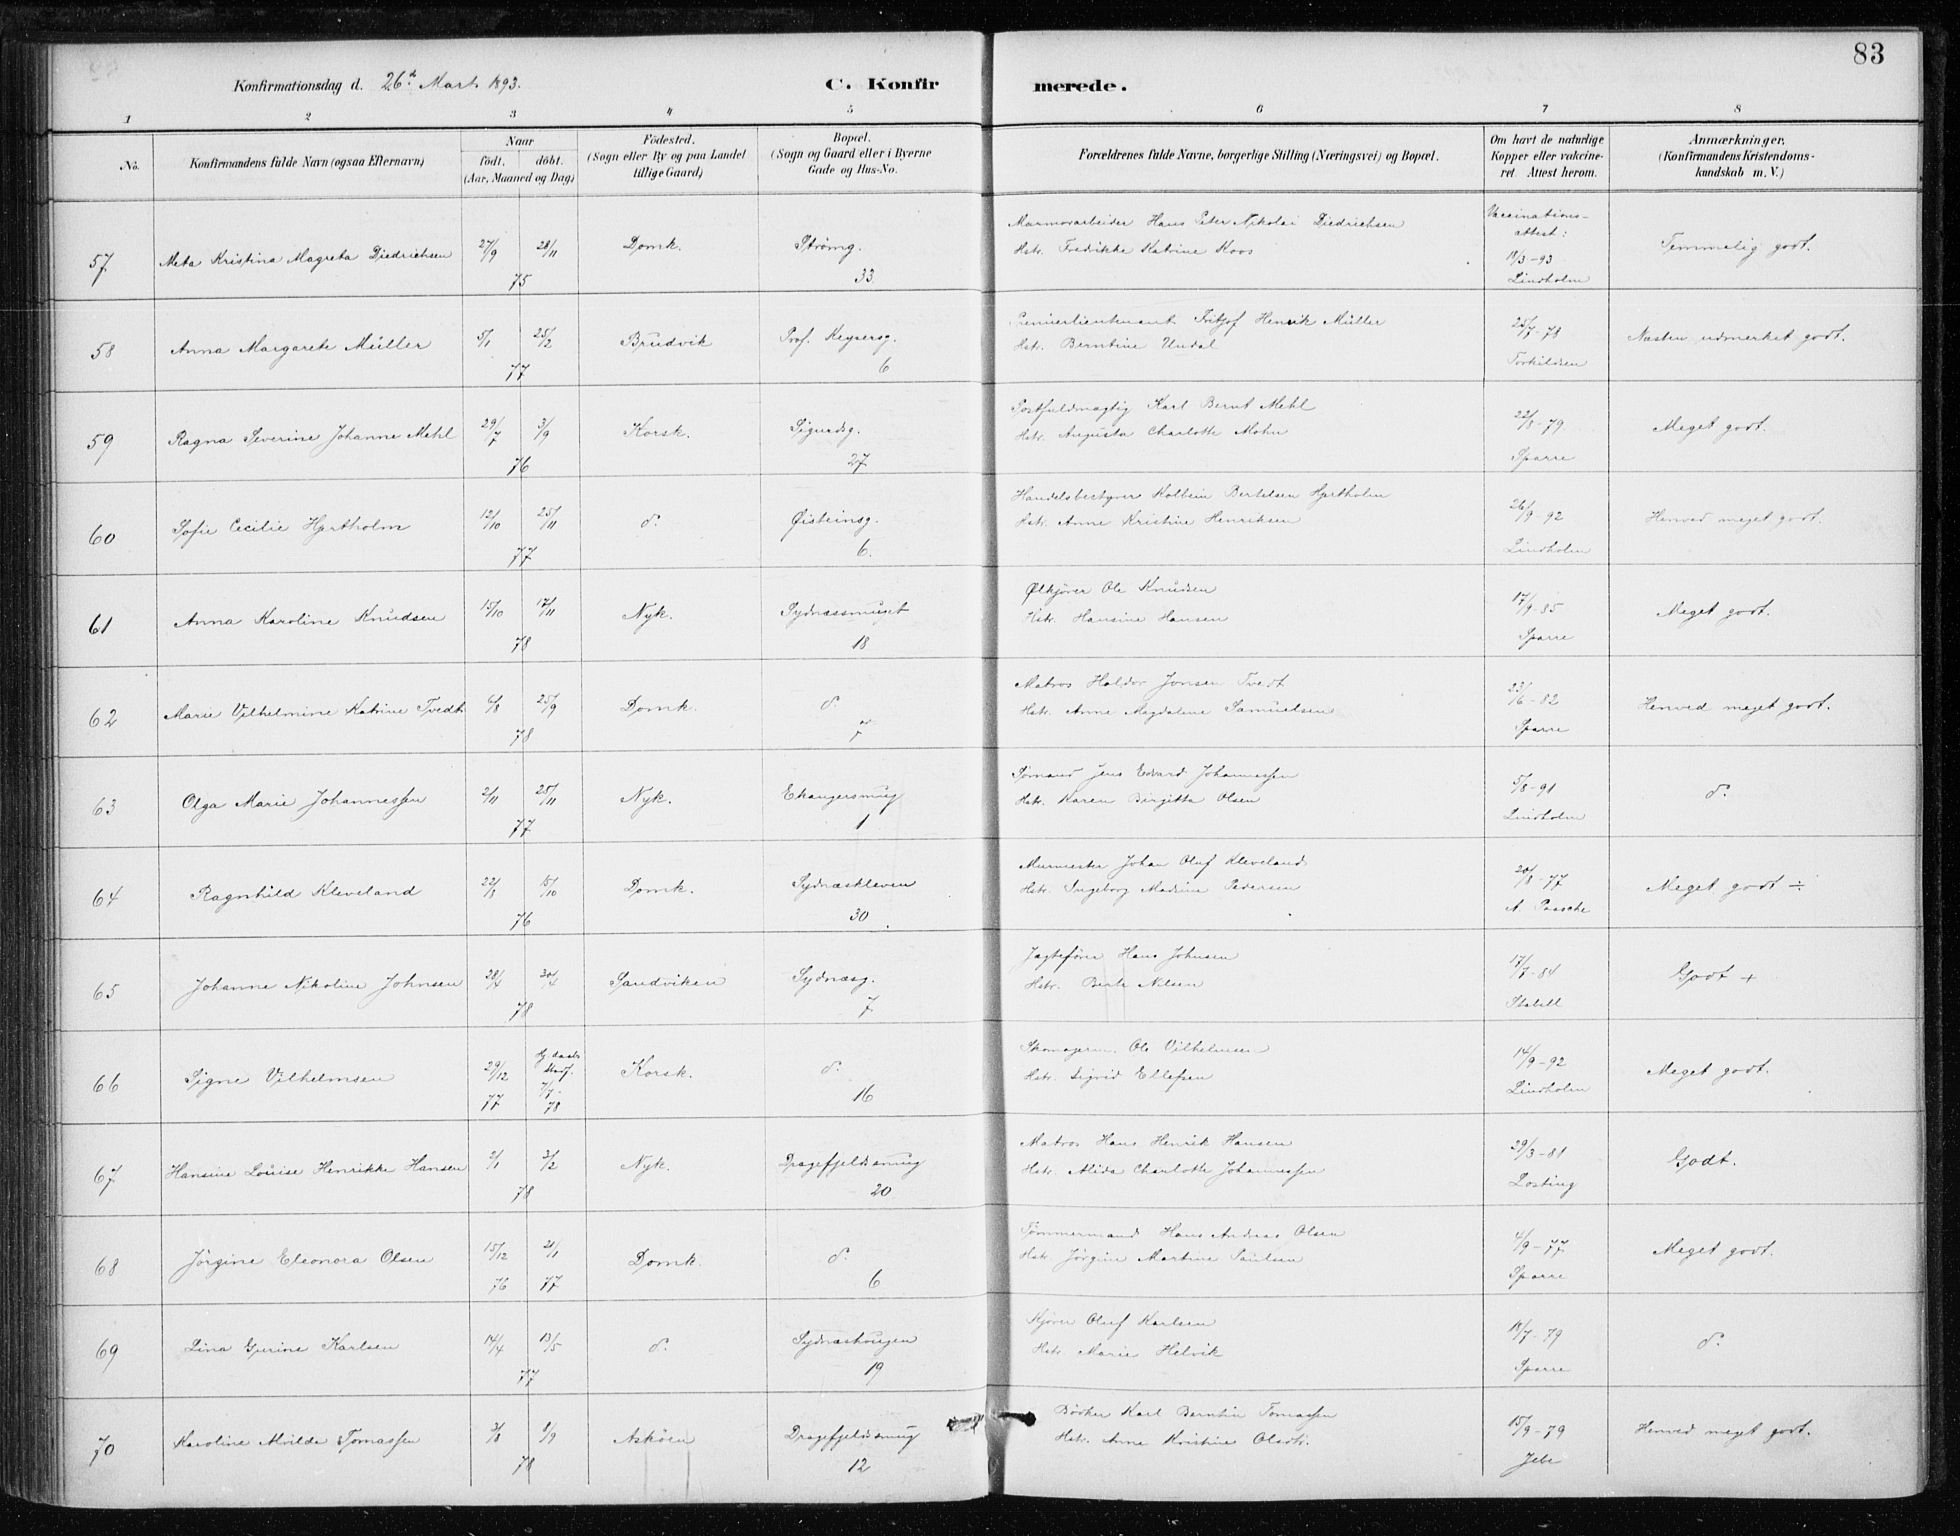 83
Konfirmationsdag d. 26de Mart. 1893.
C. Konfirmerede.
1 2 3 4 5 6 7 8
No.
Konfirmandens fulde Navn (ogsaa Efternavn)
Naar
født. døbt.
(Aar, Maaned og Dag)
Fødested.
(Sogn eller By og paa Landet
tillige Gaard)
Bopæl.
(Sogn og Gaard eller i Byerne
Gade og Hus-No.
Forældrenes fulde Navne, borgerlige Stilling (Næringsvei) og Bopæl.
Om havt de naturlige
Kopper eller vakcine-
ret. Attest herom.
Anmærkninger.
(Konfirmandens Kristendoms-
kundskab m. V.)
57 Meta Kristina Magreta Diedrichsen 27/9 28/11 75 Domk. Strømg. 33
Marmorarbeider Hans Peter Nikolai Diedrichsen
Hstr. Fredrikke Katrine Koos
Vaccinations-
attest:
11/3-93
Lindholm
Temmelig godt.
58 Anna Margarete Müller 5/1 25/2 77 Brudvik Prof. Keysersg. 6
Premierlieutenant Fritjof Henrik Müller
Hstr. Berntine Undal
25/7-78
Torkildsen
Næsten udmerket godt.
59 Ragna Severine Johanne Mehl 29/7 3/9 76 Korsk. Sigurdsg. 27
Postfuldmægtig Karl Bernt Mehl
Hstr. Augusta Charlotte Mohn
22/8-79
Sparre
Meget godt.
60 Sofie Cecilie Hjrtholm 12/10 25/11 77 d. Øisteinsg. 6.
Handelsbestyrer Kolbein Bertelsen Hjrtholm
Hstr. Anne Kristine Henriksen
26/9-92
Lindholm
Henved meget godt.
61 Anna Karoline Knudsen 15/10 17/11 78 Nyk. Sydnæssmuget 18
Ølkjører Ole Knudsen
Hstr. Hansine Hansen
17/9-85
Sparre
Meget godt.
62 Marie Vilhelmine Katrine Tvedt 6/8 25/9 78 Domk. d. 7
Matros Haldor Jonsen Tvedt
Hstr. Anne Magdalene Samuelsen
23/6-82
Sparre
Henved meget godt.
63 Olga Marie Johannessen 2/11 25/11 77 Nyk. Ekangersmug 1
Sømand Jens Edvard Johannessen
Hstr. Karen Birgitta Olsen
5/8-91
Lindholm
d.
64 Ragnhild Kleveland 22/8 15/10 76 Domk. Sydnæskleven 30
Murmester Johan Oluf Kleveland
Hstr. Ingeborg Madine Pedersen
20/8-77
A. Paasche
Meget godt ÷
65 Johanne Nikoline Johnsen 28/4 30/4 78 Sandviken Sydnæsg. 7
Jagtefører Hans Johnsen
Hstr. Berte Nilsen
17/7-84
Stabell
Godt +
66 Signe Vilhelmsen 29/12 77 Hj. daab Stadf. 7/7 78 Korsk. d. 16
Skomagerm. Ole Vilhelmsen
Hstr. Sigrid Ellefsen
14/9-92
Lindholm
Meget godt.
67 Hansine Louise Henrikke Hansen 2/1 3/2 78 Nyk. Dragefjeldsmug 20
Matros Hans Henrik Hansen
Hstr. Alida Charlotte Johannessen
29/3-81
Losting
Godt.
68 Jørgine Eleonora Olsen 15/12 76 21/1 77 Domk. d. 6
Tømmermand Hans Andreas Olsen
Hstr. Jørgine Martine Paulsen
4/9-77
Sparre
Meget godt.
69 Lina Gurine Karlsen 14/4 13/5 77 d. Sydnæshougen 19
Kjører Oluf Karlsen
Hstr. Marie Helvik
18/7-79
Sparre
d.
70 Karoline Alvilde Tomassen 3/8 8/9 78 Askøen Dragefjeldsmug 12
Bødker Karl Berntin Tomassen
Hstr. Anne Kristine Olsdtr.
15/9-79
Jebe
Henved meget godt.